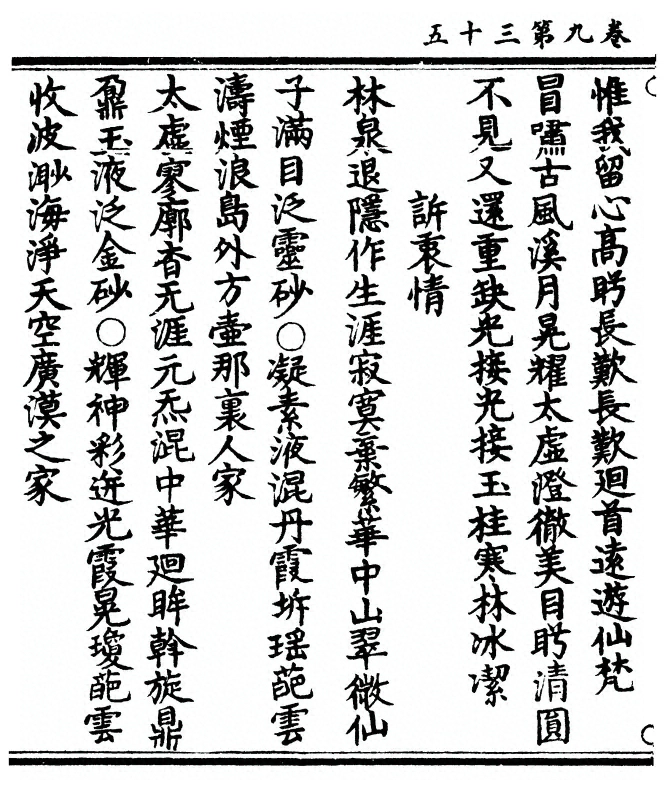 卷九第三十五
惟我留心高眄長歎長歎廻首遠遊仙梵
冒嘯古風溪月晃耀太虛澄徹美目眄清圓
不見又還重缺光接光接玉桂寒林冰潔
訴衷情
林泉退隱作生涯寂寞棄繁華中山翠微仙
子滿目泛靈砂〇凝素液混丹霞坼瑤葩雲
濤煙浪島外方壺那裏人家
太虛寥廓杳无涯元炁混中華廻眸斡旋鼎
鼐玉液泛金砂〇輝神彩迸光霞晃瓊葩雲
收波渺海淨天空廣漠之家